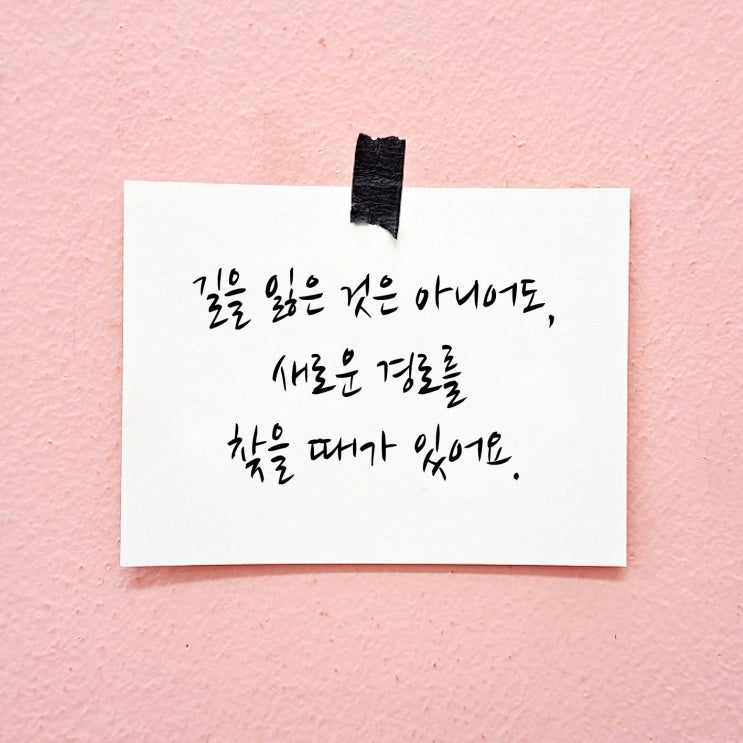 길을 잃은 것은 아니어도,
새로운 경로를
찾을 때가 있어요.